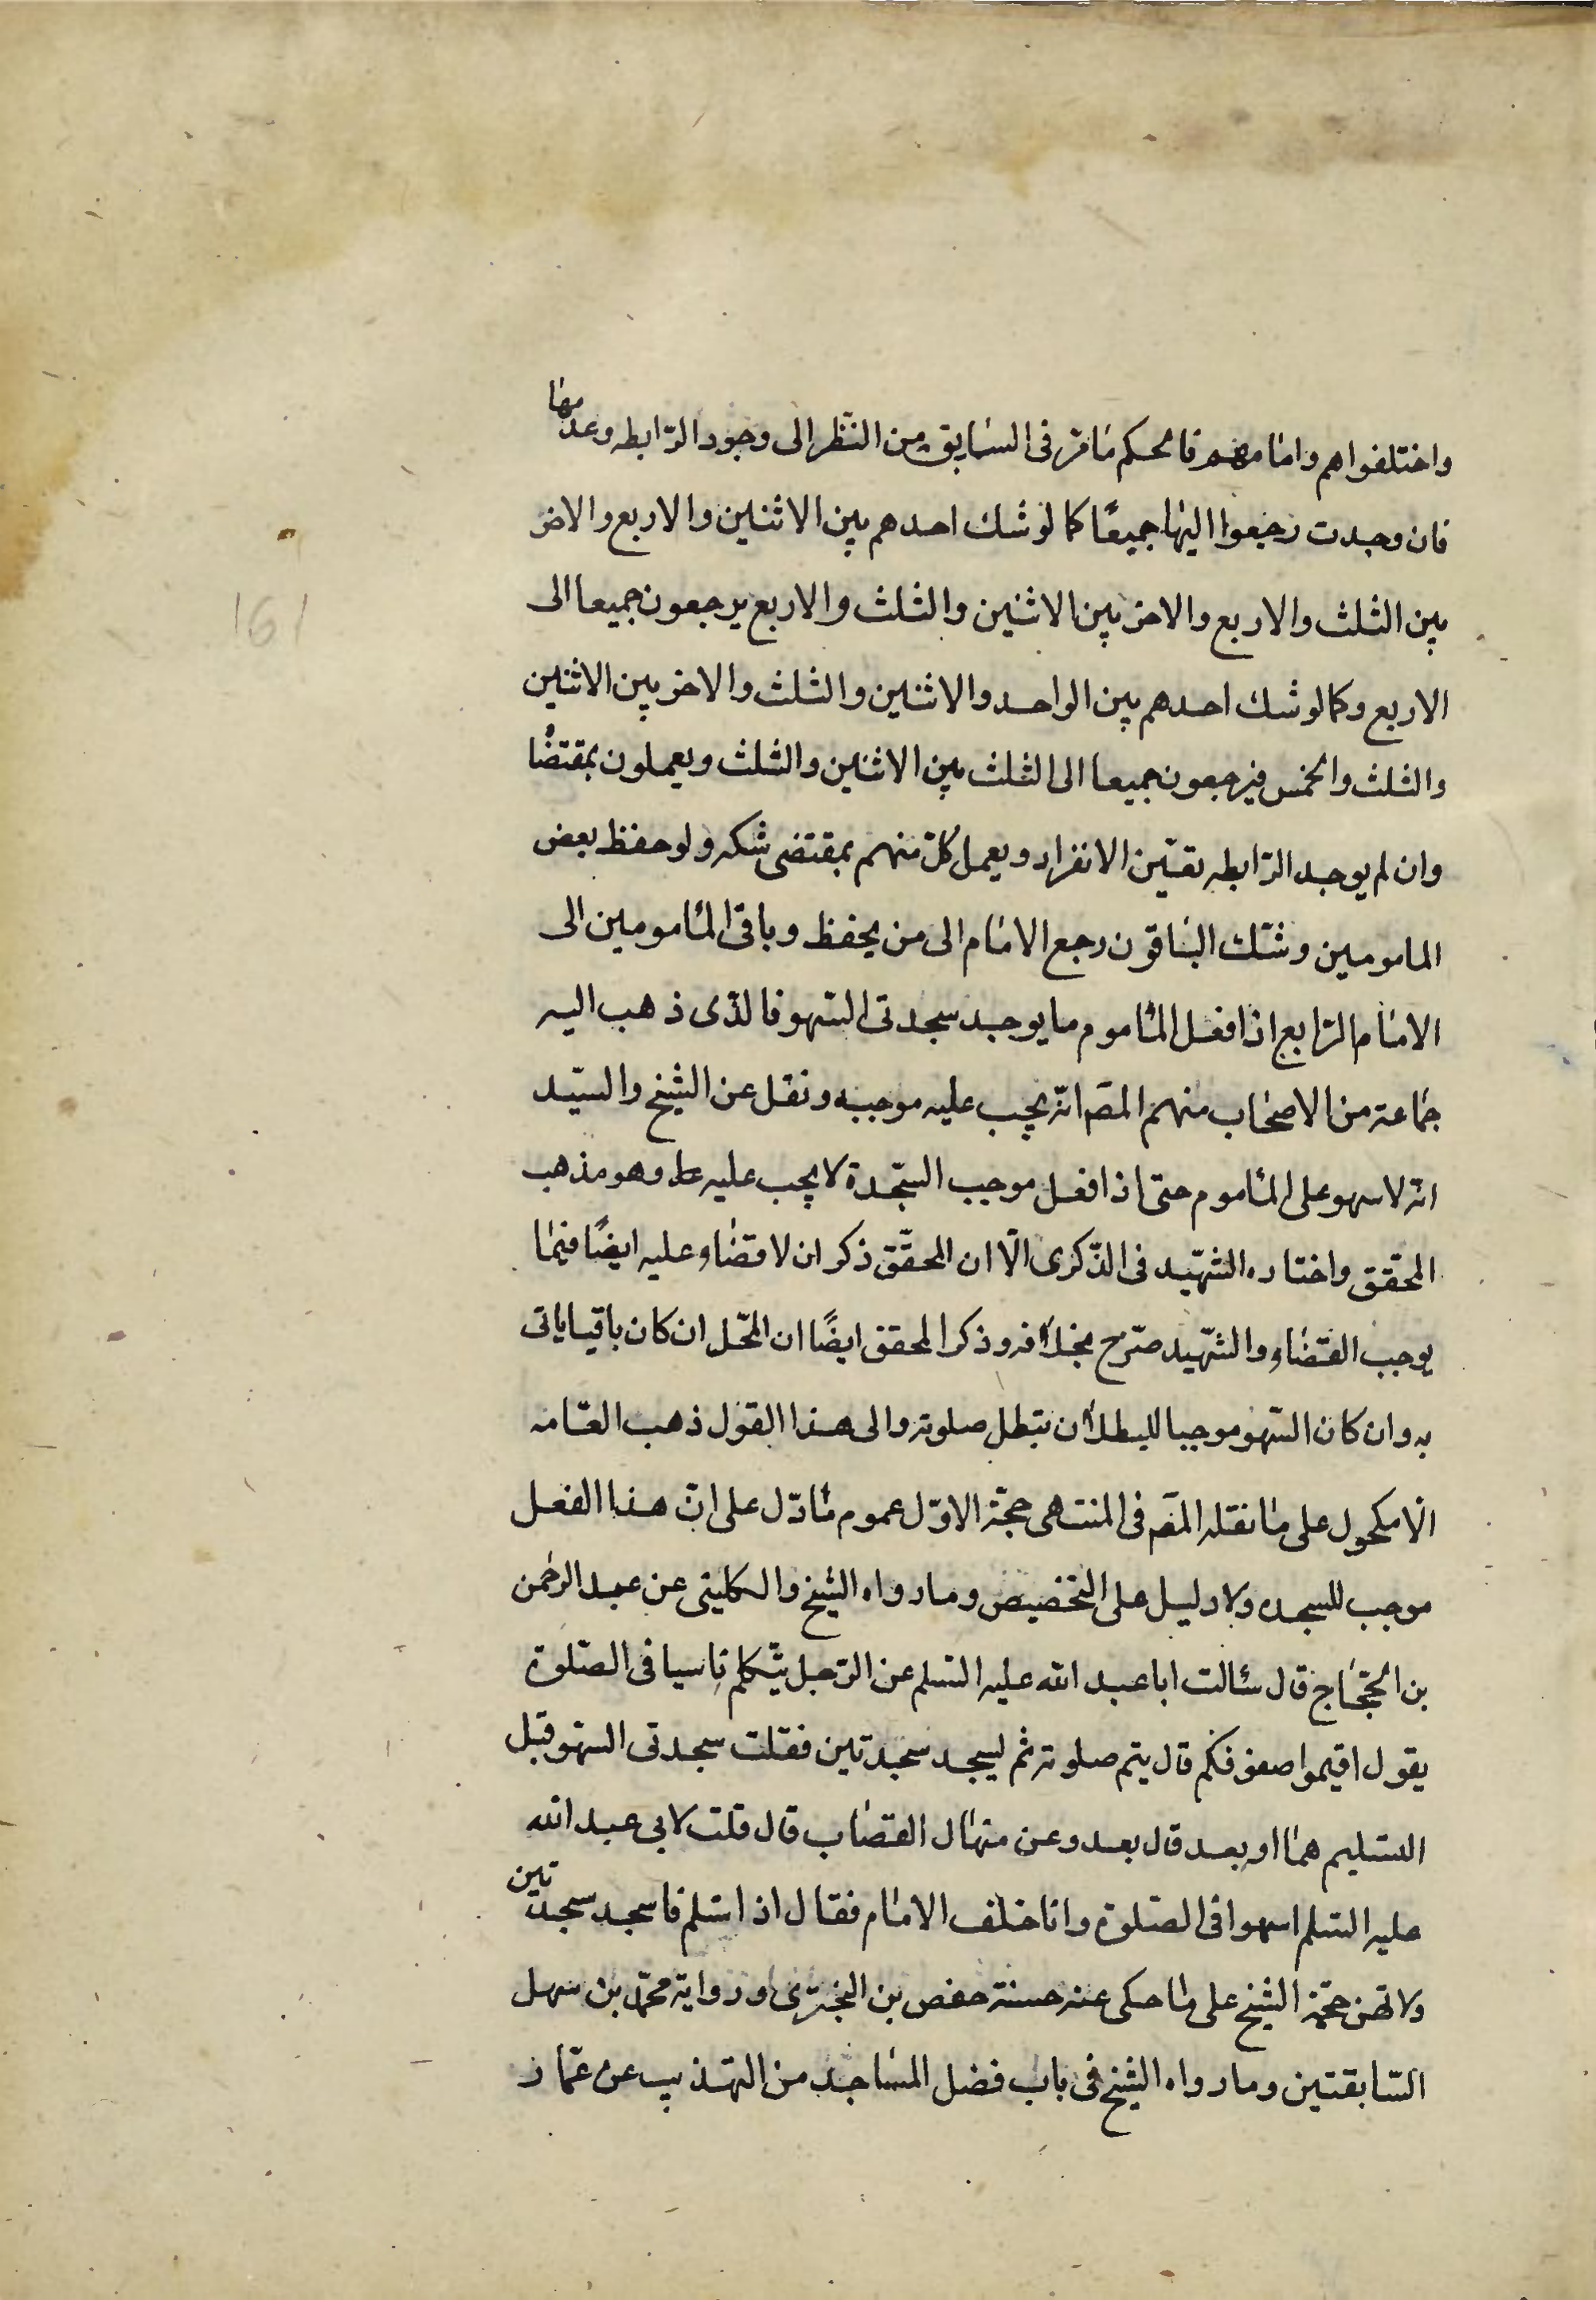 واختلفوا هم وامامهم فالحكم ما مر فى السابق من النظر الى وجود الرابطه وعدمها
فان وجدت رجعوا اليها جميعًا كما لو شك احدهم بين الاثنين والاربع والاخر
بين الثلث والاربع والاخر بين الاثنين والثلث والاربع يرجعون جميعا الى
الاربع وكما لو شك احدهم بين الواحد والاثنين والثلث والاخر بين الاثنين
والثلث والخمس فيرجعون جميعا الى الثلث بين الاثنين والثلث ويعملون بمقتضا
وان لم يوجد الرابطه تعين الانفراد ويعمل كل منهم بمقتضى شكه ولو حفظ بعض
المامومين وشك الباقون رجع الامام الى من يحفظ وباقى المامومين الى
الامام الرابع اذا فعل الماموم ما يوجب سجدتى السهو فالذى ذهب اليه
جماعة من الاصحاب منهم المصَ انه يجب عليه موجبه ونقل عن الشيخ والسيّد
انه لا سهو على الماموم حتى اذا فعل موجب السّجدة لا يجب عليه وهو مذهب
المحقق واختاره الشهيد فى الذّكرى الّا ان المحقّق ذكر ان لا قضاء عليه ايضًا فيما
يوجب القضاء والشهيد صرّح بخلافه وذكر المحقق ايضًا ان المحّل ان كان باقيا ياتى
به وان كان السّهو موجبا للبطلان تبطل صلوته والى هذا القول ذهب العامه
الّا مكحول على ما نقله المصَ فى المنتهى حجّة الاوّل عموم ما دّل على انّ هذا الفعل
موجب للسجده ولا دليل على التخصيص وما رواه الشيخ والكلينى عن عبد الرحمن
بن الحجّاج قال سالت ابا عبد الله عليه السلم عن الرّجل يتكلم ناسيا فى الصّلوة
يقول اقيموا صفوفكم قال يتم صلوته ثم ليسجد سجدتين فقلت سجدتى السهو قبل
التسليم هما او بعد قال بعد وعن منهال القصاب قال قلت لابى عبد الله
عليه السلم اسهوا فى الصّلوة وانا خلف الامام فقال اذا سّلم فاسجد سجدتين
ولا تهن حجّة الشيخ على ما حكى عنه حسنة حفص بن البخترى ورواية محمّد بن سهل
السّابقتين وما رواه الشيخ فى باب فضل المساجد من التهذيب عن عمّار
161